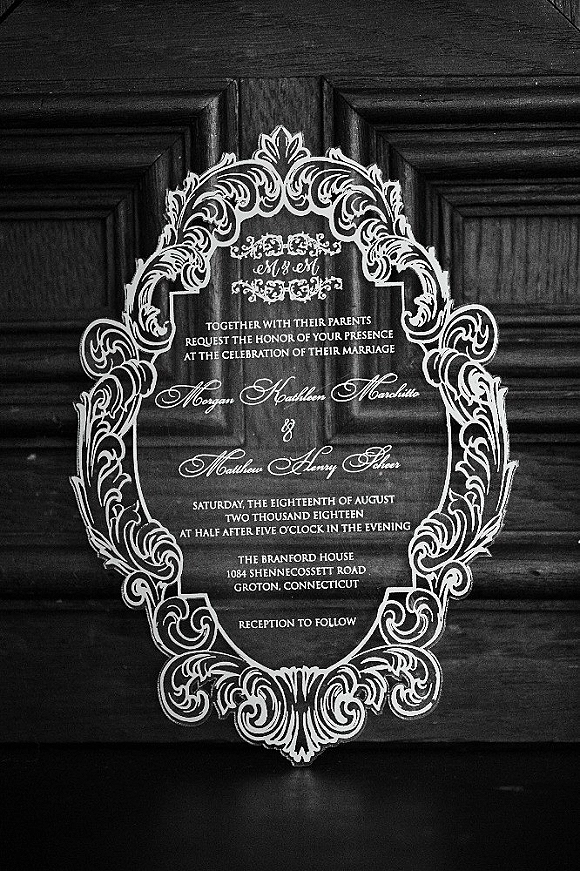 M & M
TOGETHER WITH THEIR PARENTS
REQUEST THE HONOR OF YOUR PRESENCE
AT THE CELEBRATION OF THEIR MARRIAGE
Morgan Kathleen Marchitto
&
Matthew Henry Scheer
SATURDAY, THE EIGHTEENTH OF AUGUST
TWO THOUSAND EIGHTEEN
AT HALF AFTER FIVE O'CLOCK IN THE EVENING
THE BRANFORD HOUSE
1084 SHENNECOSSETT ROAD
GROTON, CONNECTICUT
RECEPTION TO FOLLOW